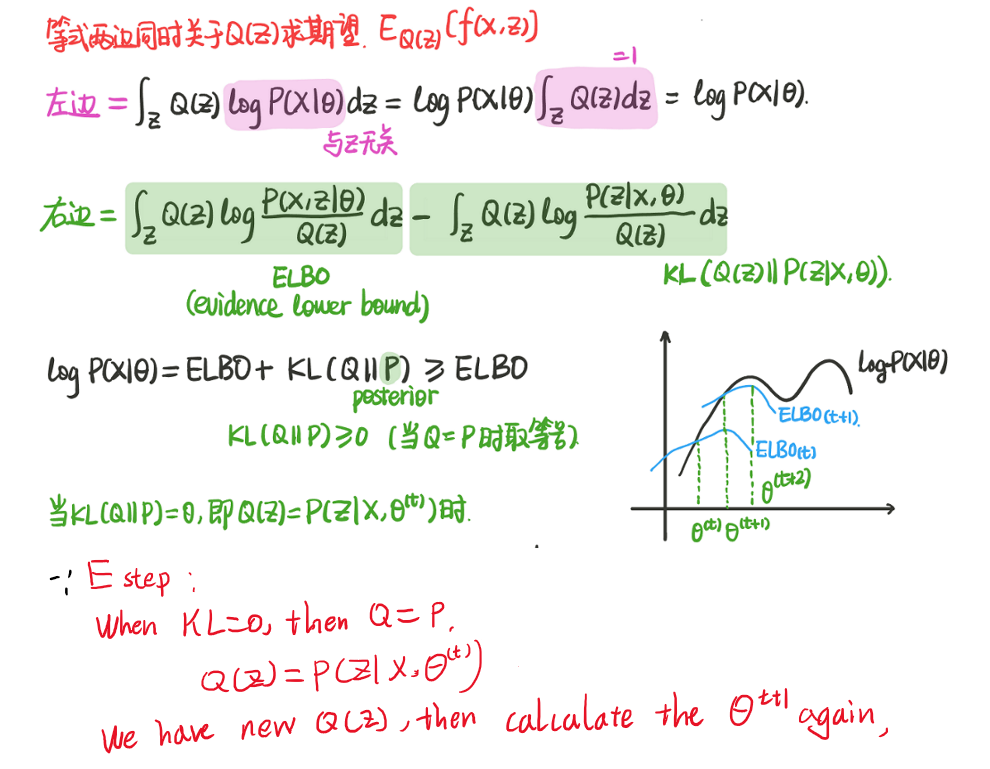 等式两边同时关于Q(Z)求期望. E_{Q(Z)}[f(X,Z)]
=1
左边 = ∫_Z Q(Z) log P(X|θ) dZ = log P(X|θ) ∫_Z Q(Z)dZ = log P(X|θ).
与Z无关
右边 = ∫_Z Q(Z) log \frac{P(X,Z|θ)}{Q(Z)} dZ - ∫_Z Q(Z) log \frac{P(Z|X,θ)}{Q(Z)} dZ
ELBO
KL(Q(Z)||P(Z|X,θ)).
(evidence lower bound)
log P(X|θ) = ELBO + KL(Q||P) ⩾ ELBO
posterior
KL(Q||P)⩾0 (当Q=P时取等号)
log P(X|θ)
ELBO(t+1).
ELBO(t)
θ^{(t+2)}
θ^{(t)} θ^{(t+1)}
当KL(Q||P)=0, 即Q(Z)=P(Z|X,θ^{(t)})时.
E step :
When KL=0, then Q=P.
Q(Z)=P(Z|X,θ^{(t)})
We have new Q(Z), then calculate the θ^{t+1} again,